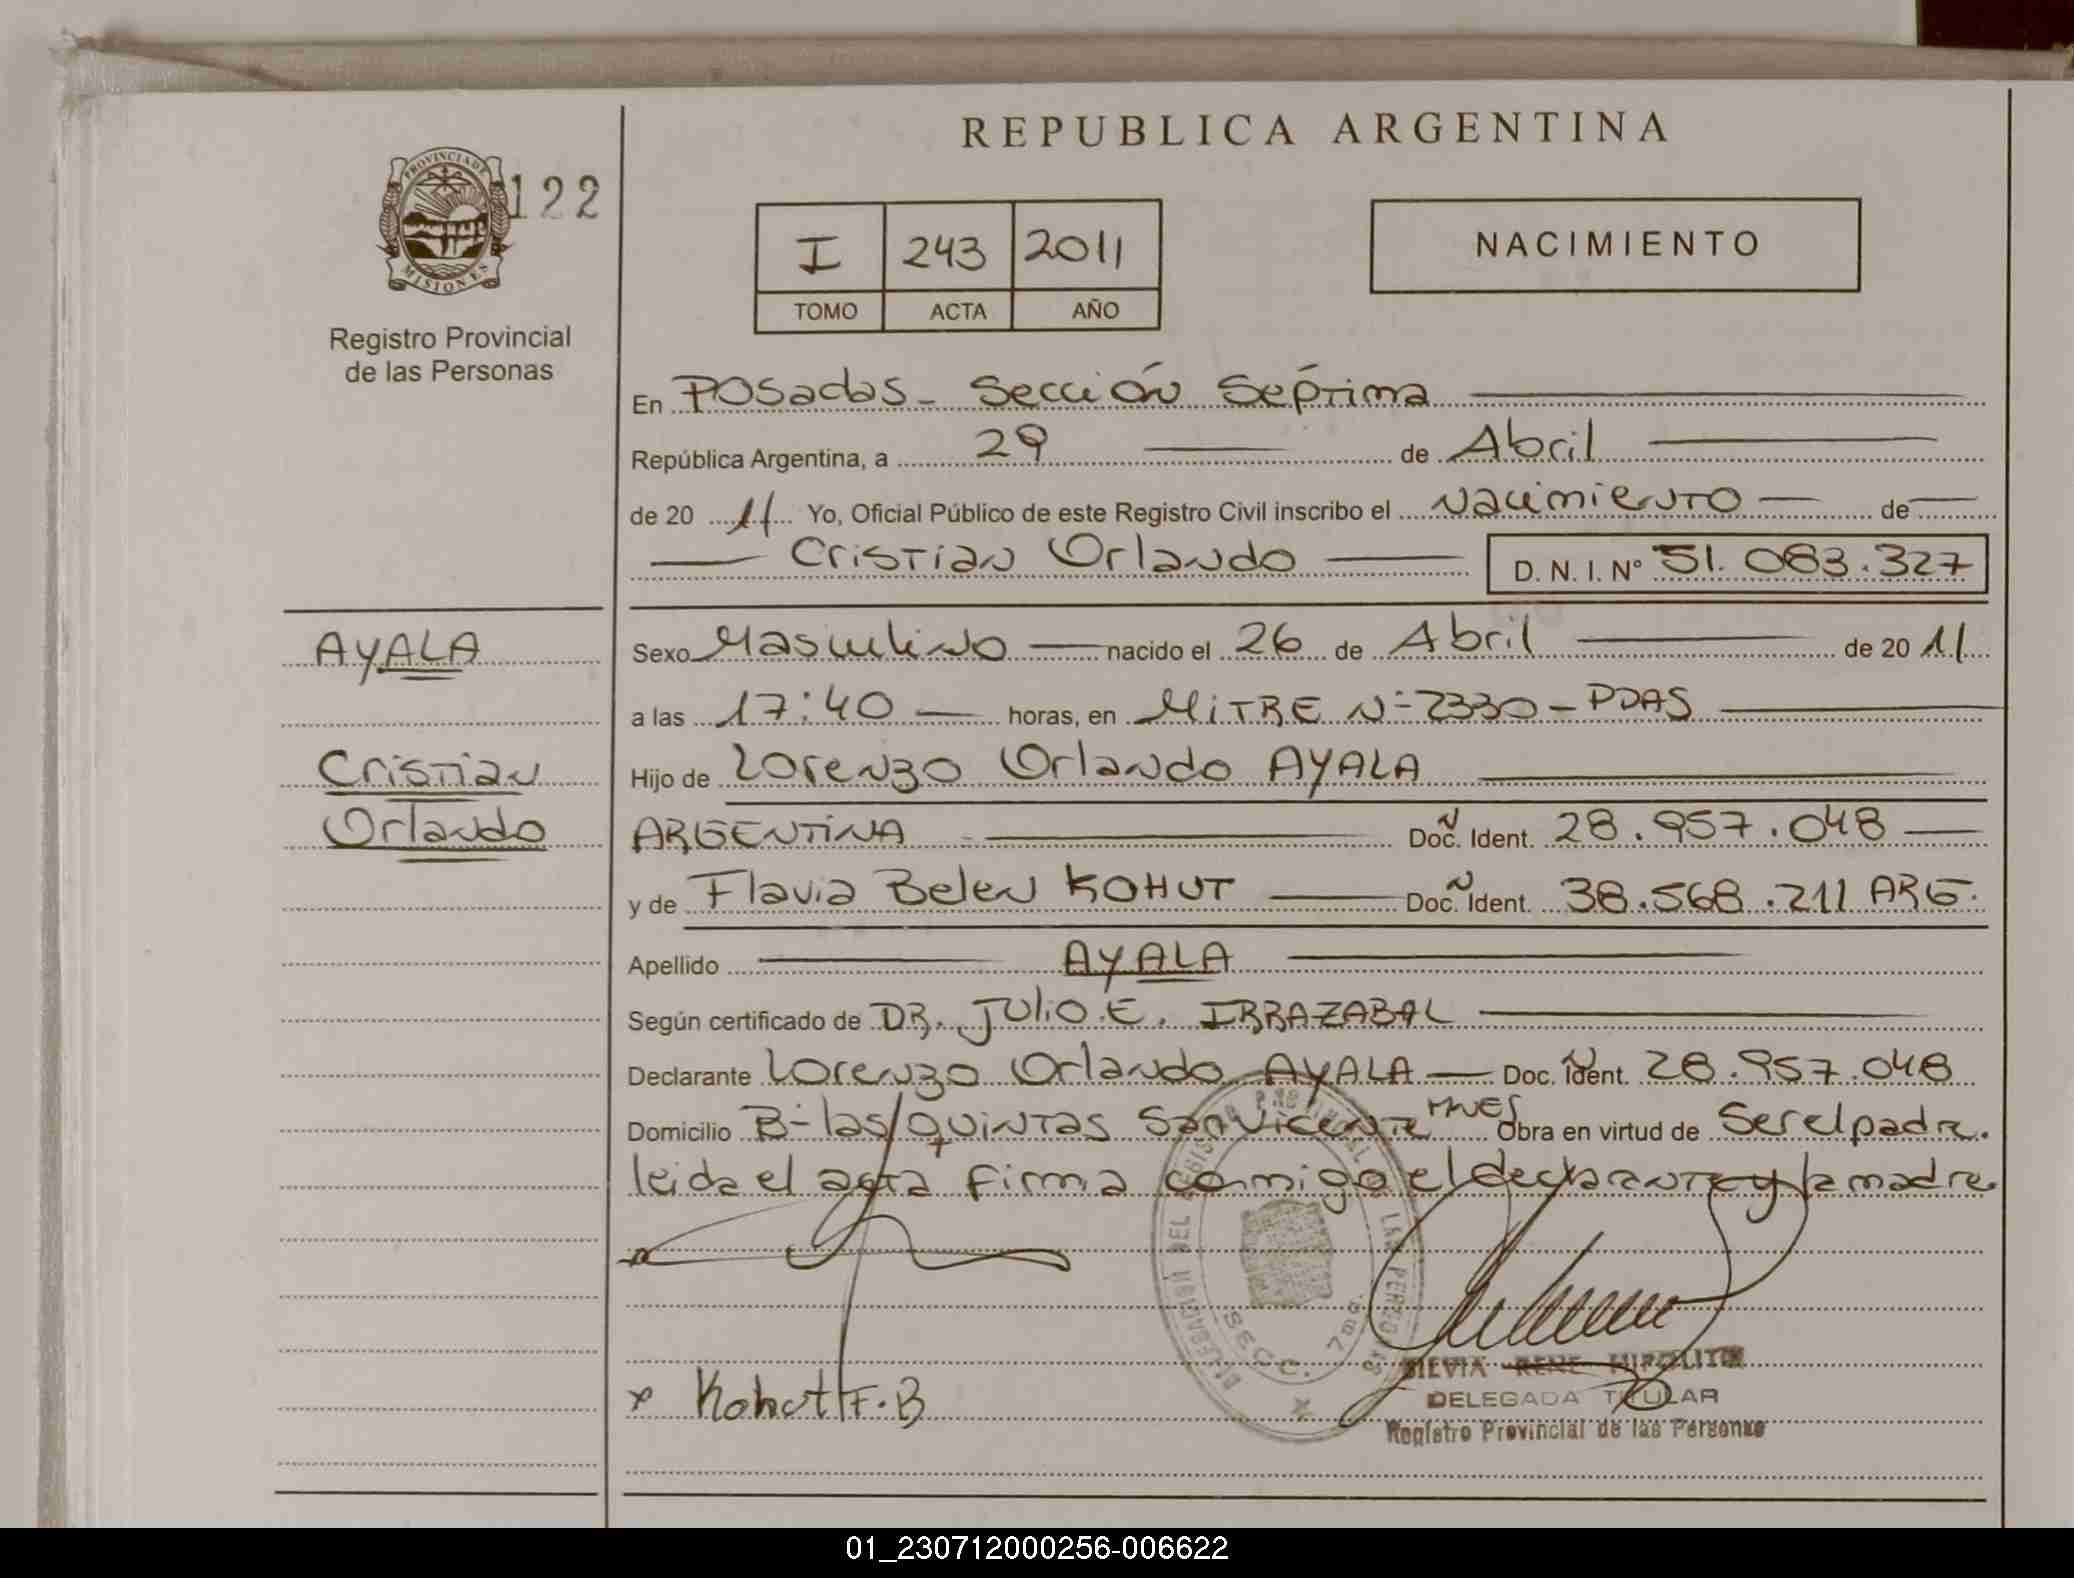 REPUBLICA ARGENTINA
PROVINCIA DE
MISIONES
122
Registro Provincial
de las Personas
I 243 2011
TOMO ACTA AÑO
NACIMIENTO
En Posadas - Sección Séptima
República Argentina, a 29 de Abril
de 20 11 Yo, Oficial Público de este Registro Civil inscribo el Nacimiento de
Cristian Orlando D. N. I. Nº 51.083.327
AYALA
Cristian
Orlando
Sexo Masculino nacido el 26 de Abril de 20 11
a las 17:40 horas, en MiTRE Nº 2330 - PDAS
Hijo de Lorenzo Orlando AYALA
ARGENTINA Doc. Ident. 28.957.048
y de Flavia Belen KOHUT Doc. Ident. 38.568.211 ARG.
Apellido AYALA
Según certificado de DR. Julio E. IRRAZABAL
Declarante Lorenzo Orlando AYALA Doc. Ident. 28.957.048
Domicilio Bº las quintas San Vicente Mnes Obra en virtud de Ser el padre.
leida el acta firma conmigo el declarante y la madre
DELEGACION DEL REGISTRO PROVINCIAL DE LAS PERSONAS
SECC. 7ma.
x Kohut F.B
SILVIA RENE HIPOLITO
DELEGADA TITULAR
Registro Provincial de las Personas
01_230712000256-006622